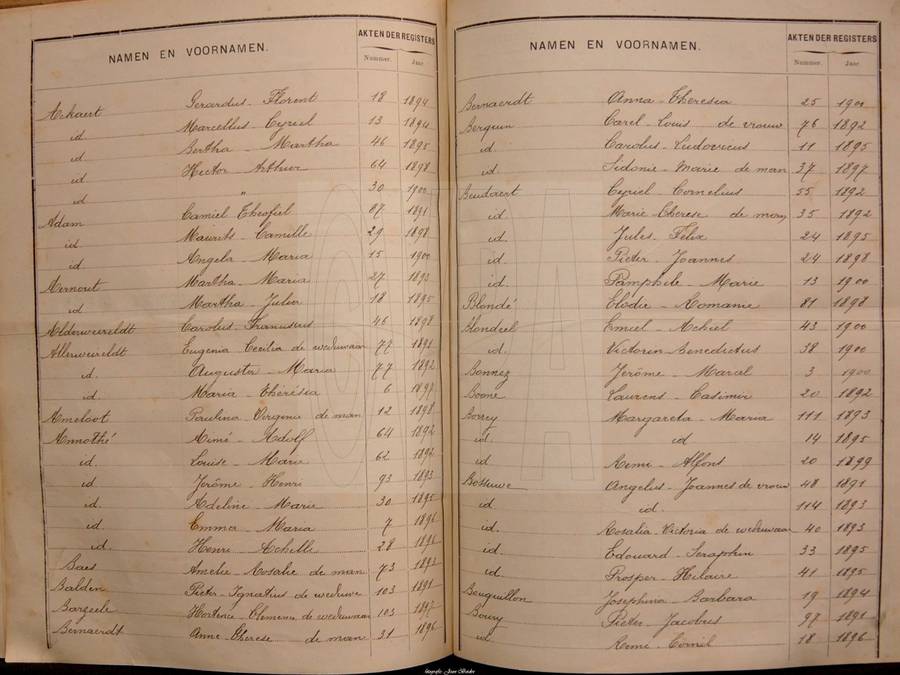 NAMEN EN VOORNAMEN. AKTEN DER REGISTERS
Nummer. Jaar.
Ackaert Gerardus - Florent 18 1894
id Marcellus - Cyriel 13 1894
id Bertha - Martha 46 1895
id Hector - Arthur 64 1898
id " 30 1900
Adam Camiel Theofiel 87 1891
id Maurits - Camille 29 1898
id Angela - Maria 15 1900
Aernout Martha - Maria 27 1893
id Martha - Julia 18 1895
Alderweireldt Carolus - 46 1898
Allerweireldt Eugenia Cecilia de weduwaar 77 1891
id. Augusta - Maria 77 1892
id. Maria - Therésia 6 1897
Ameloot Paulina - Virginie de man 12 1898
Annothé Aimé - Adolf 64 1892
id. Louise - Marie 62 1892
id Jerôme - Henri 93 1893
id Adeline - Marie 30 1895
id Emma - Maria 7 1896
id. Henri - Achille 28 1896
Baes Amelie - Rosalie de man 73 1893
Balden Pieter - Ignatius de weduwe 103 1891
Bargeele Hortence - Clemence de weduwaar 103 1897
Bernaerdt Anne - Therese de man 31 1896
NAMEN EN VOORNAMEN. AKTEN DER REGISTERS
Nummer. Jaar.
Bernaerdt Anna - Theresia 25 1900
Bergeun Carel - Louis de vrouw 76 1892
id. Carolus - Ludovicus 11 1895
id. Sidonie - Marie de man 37 1897
Beudaert Cyriel - Cornelius 55 1892
id. Marie Therese de man 35 1892
id. Jules - Félix 24 1895
id. Pieter - Joannes 24 1898
id. Pamphile - Marie 13 1900
Blondé Elodie - Romanie 81 1898
Blondeel Emiel - Achiel 43 1900
id. Victorin - Benedictus 38 1900
Bonnez Jerôme - Marcel 3 1900
Boone Laurens - Casimir 20 1892
Borry Margareta - Maria 111 1893
id. id 14 1895
id Remi - Alfons 20 1899
Bossuwe Angelus - Joannes de vrouw 48 1891
id id. 114 1893
id. Rosalia - Victoria de weduwaar 40 1893
id. Edouard - Seraphin 33 1895
id. Prosper - Hilaire 41 1895
Bouquillon Josephina Barbara 19 1894
Boury Pieter - Jacobus 97 1891
id. Remi - Cornil 18 1896